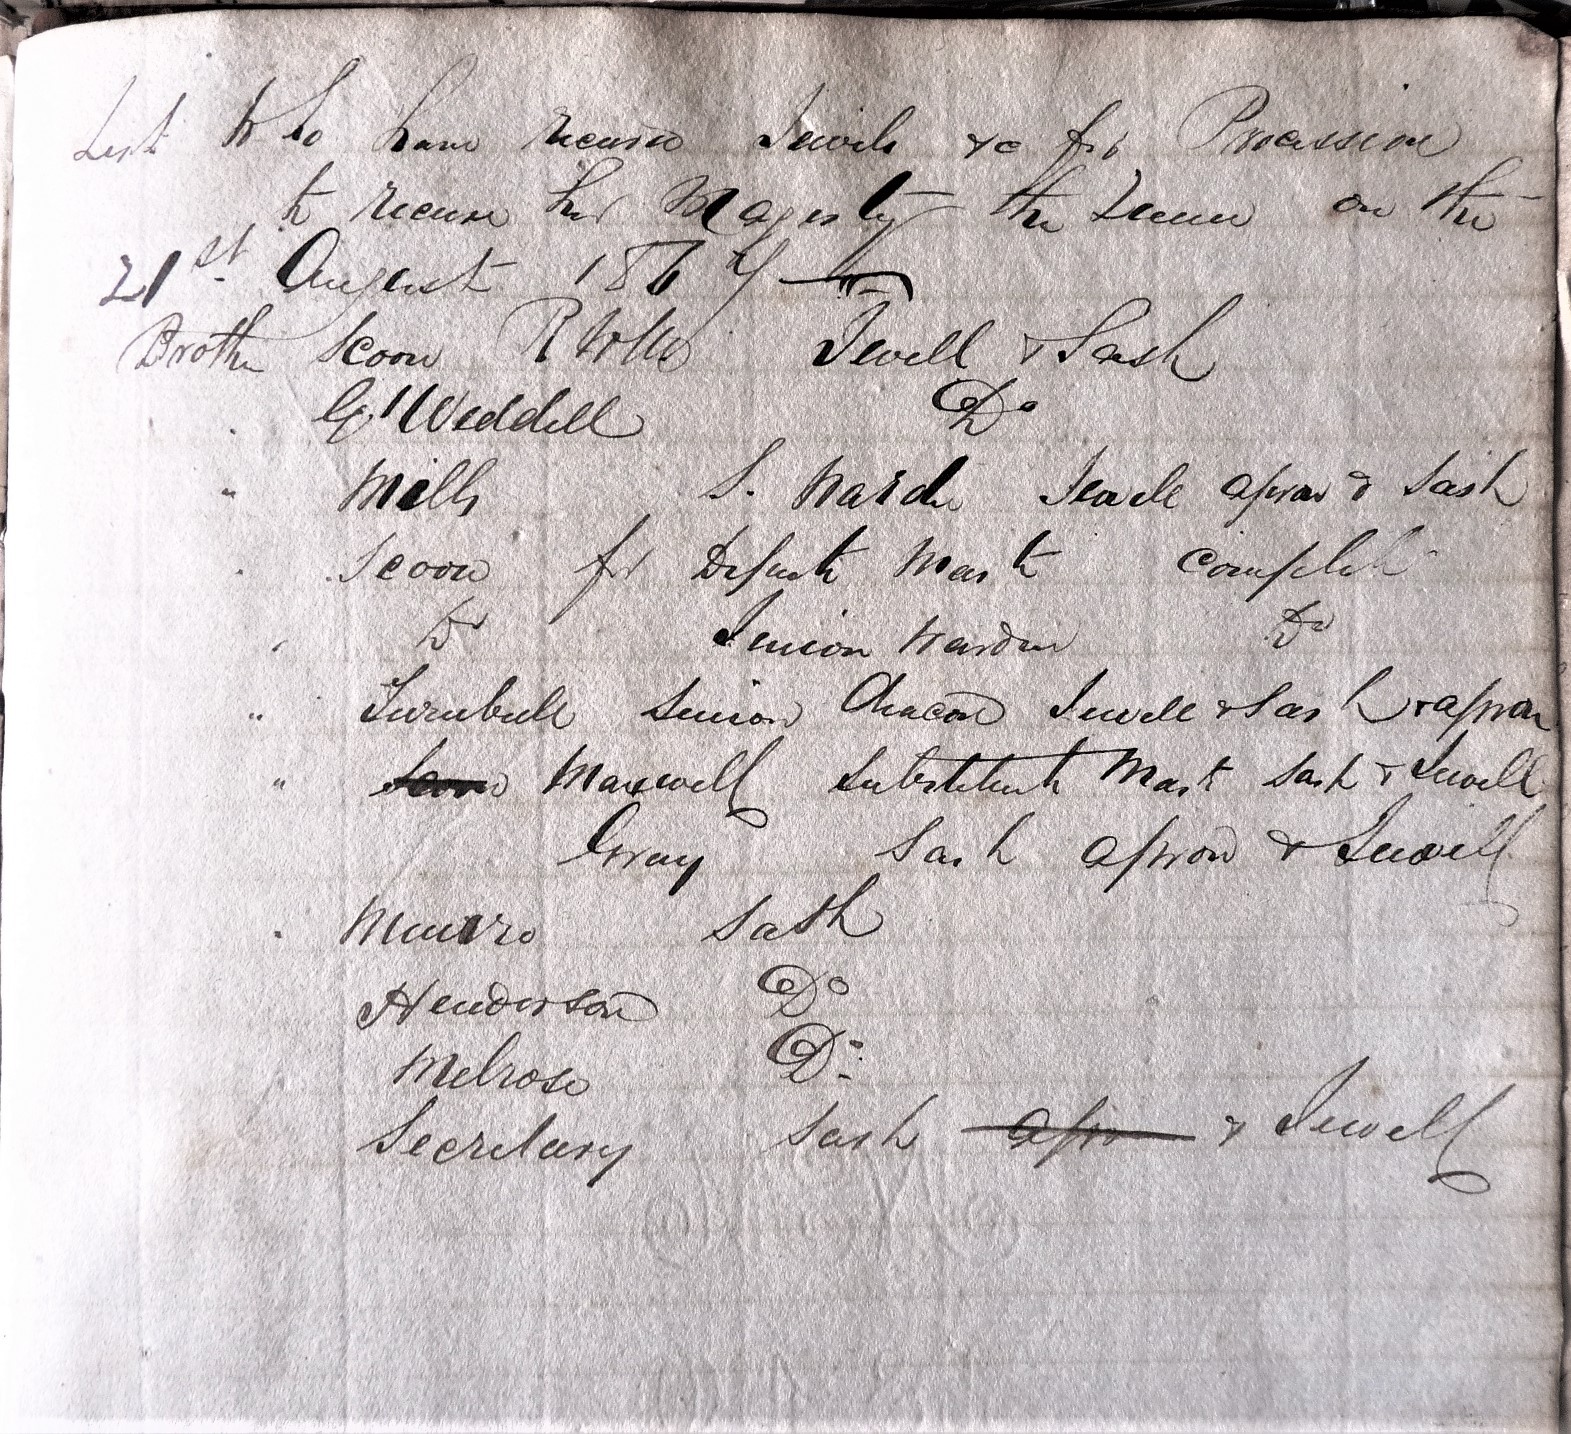 List who have received Jewels &c for Procession
to receive her Majesty the Queen on the
21st August 1867
Brother Scoon R W M Jewell & Sash
" G. Weddell Do
" Mills S. Warden Jewell apron & Sash
" Scoon for Depute Mastr complete
" Do Senior Warden Do
" Turnbull Senior Deacon Jewell & Sash & apron
" Maxwell Substitute Mastr Sash & Jewell
Gray Sash apron & Jewell
" Munro Sash
Henderson Do
Melrose Do
Secretary Sash apron & Jewell